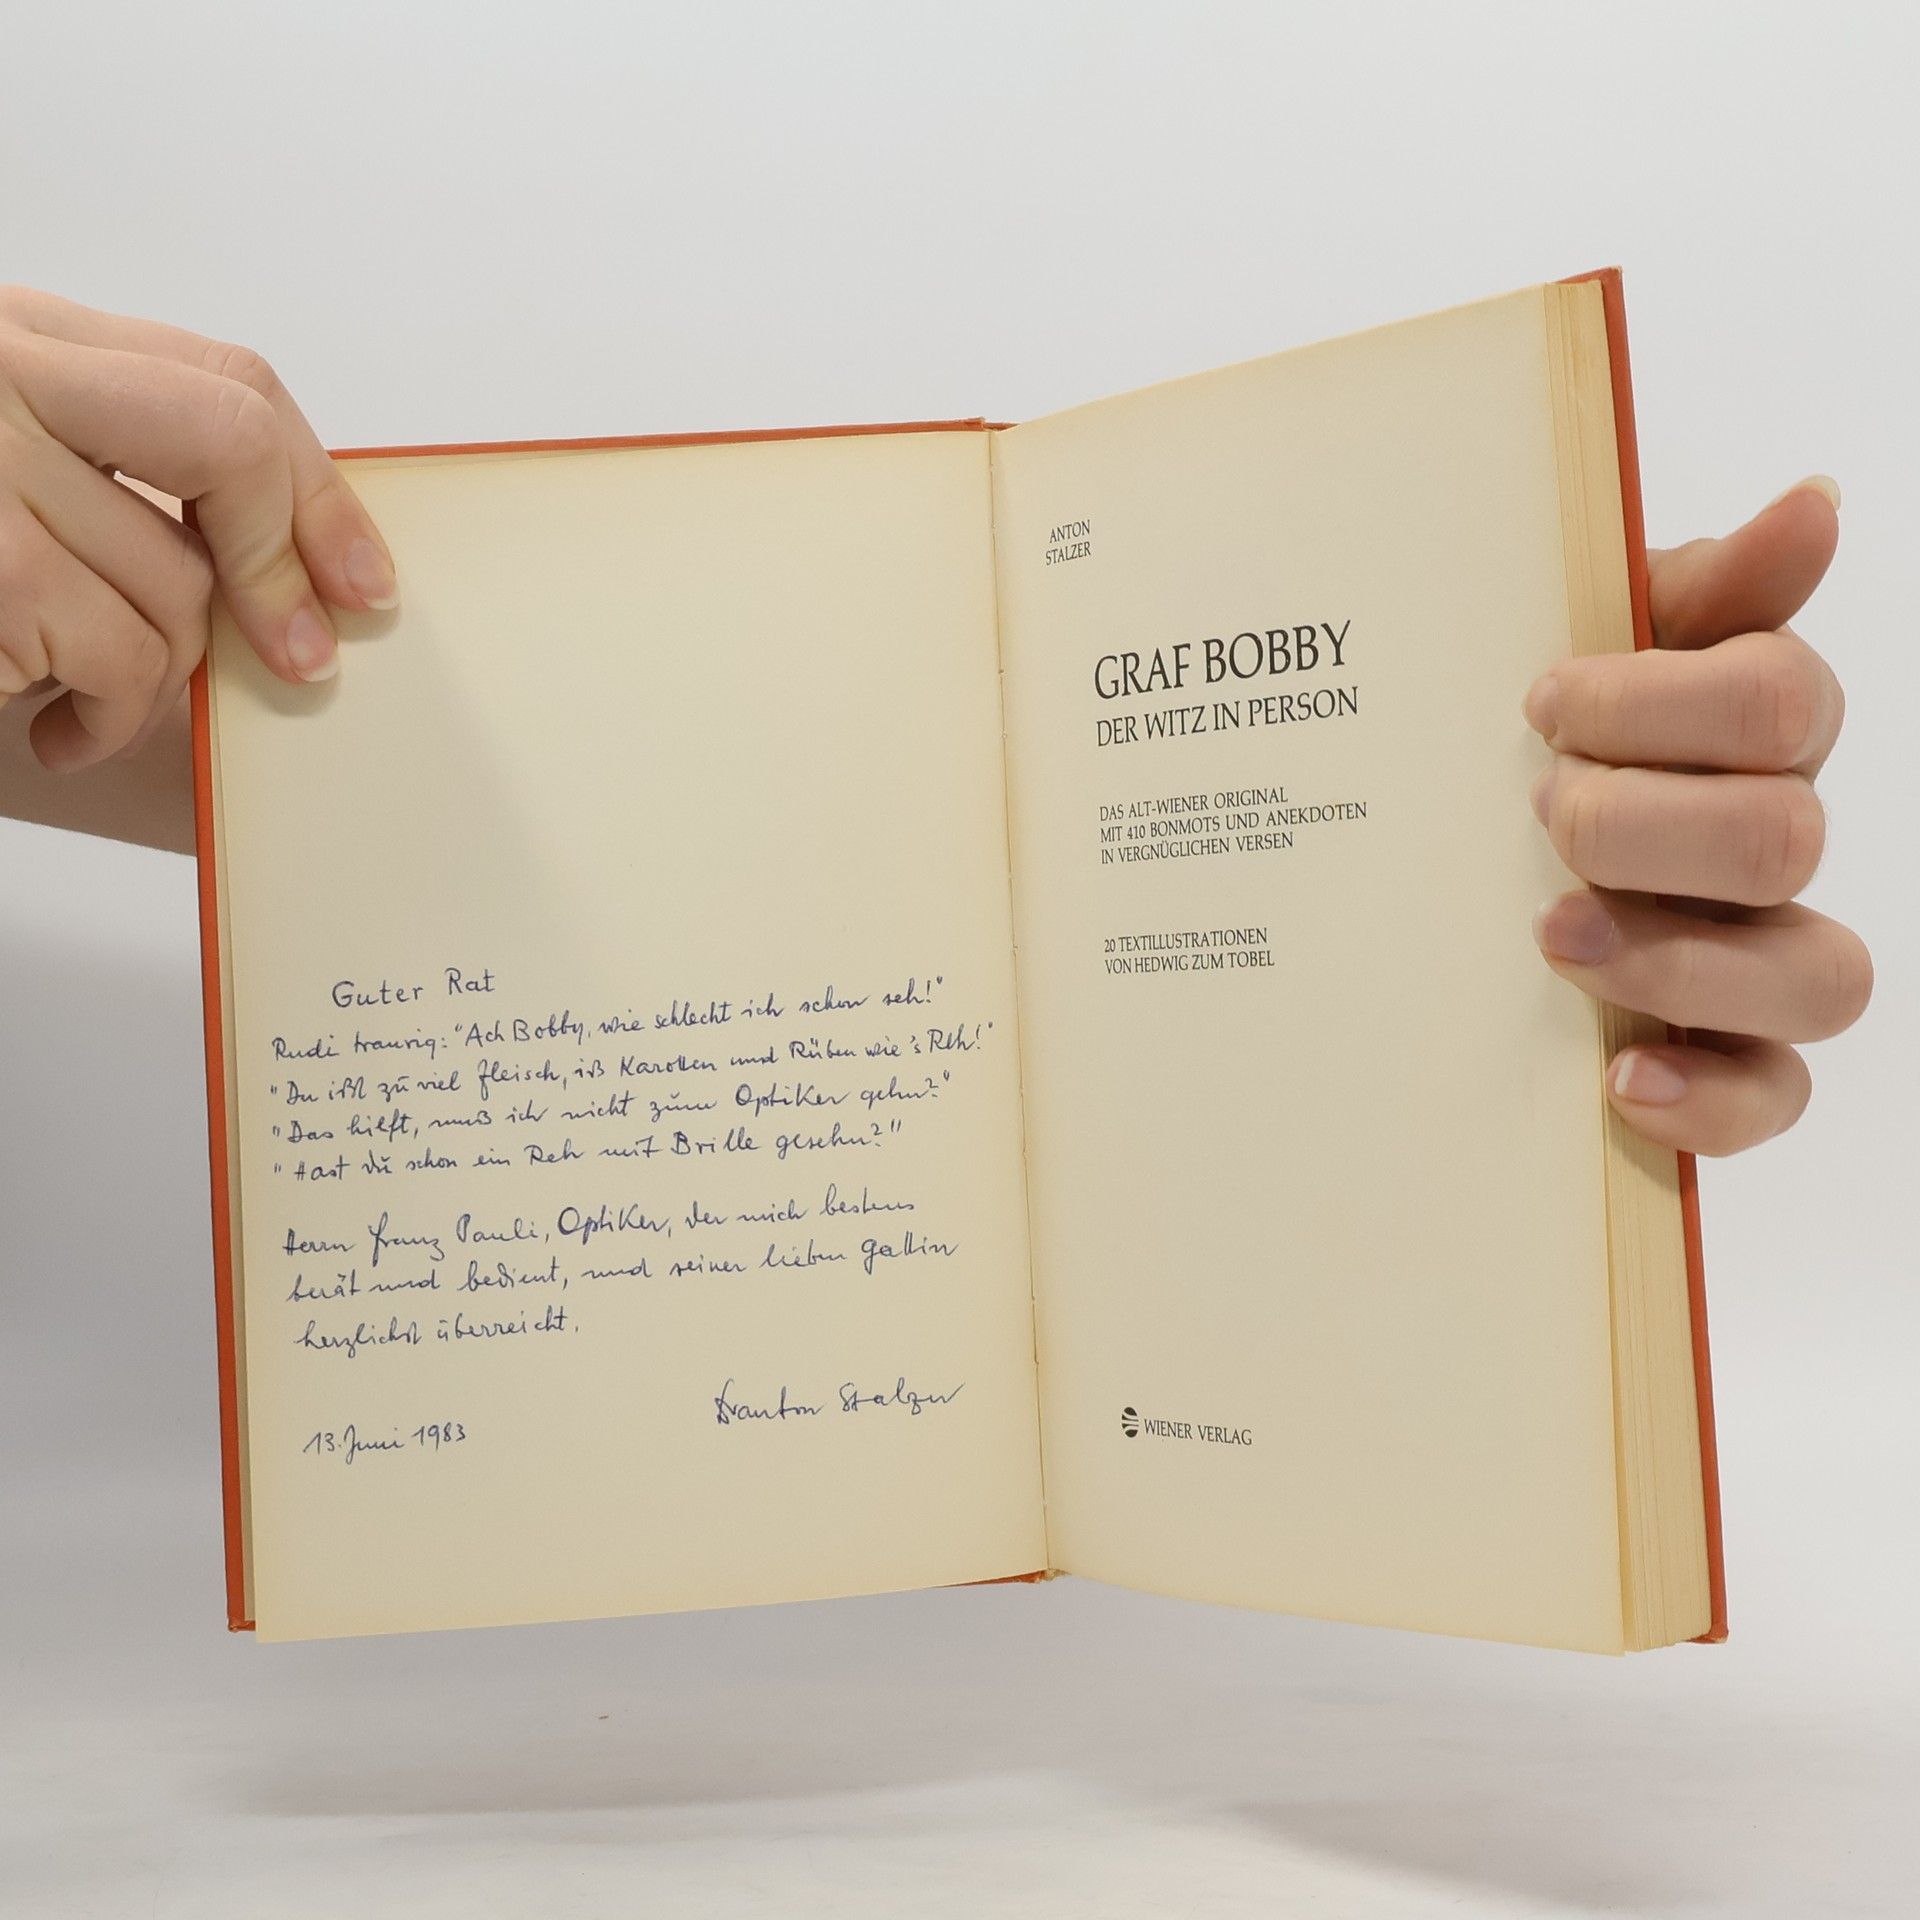 Guter Rat
Rudi traurig: "Ach Bobby, wie schlecht ich schon seh!"
"Du ißt zu viel Fleisch, iß Karotten und Rüben wie 's Reh!"
"Das hilft, muß ich nicht zum Optiker gehn?"
"Hast du schon ein Reh mit Brille gesehn?"
Herrn Franz Pauli, Optiker, der mich bestens
berät und bedient, und seiner lieben Gattin
herzlichst überreicht.
Stalzer
13. Juni 1983
ANTON
STALZER
GRAF BOBBY
DER WITZ IN PERSON
DAS ALT-WIENER ORIGINAL
MIT 410 BONMOTS UND ANEKDOTEN
IN VERGNÜGLICHEN VERSEN
20 TEXTILLUSTRATIONEN
VON HEDWIG ZUM TOBEL
WIENER VERLAG